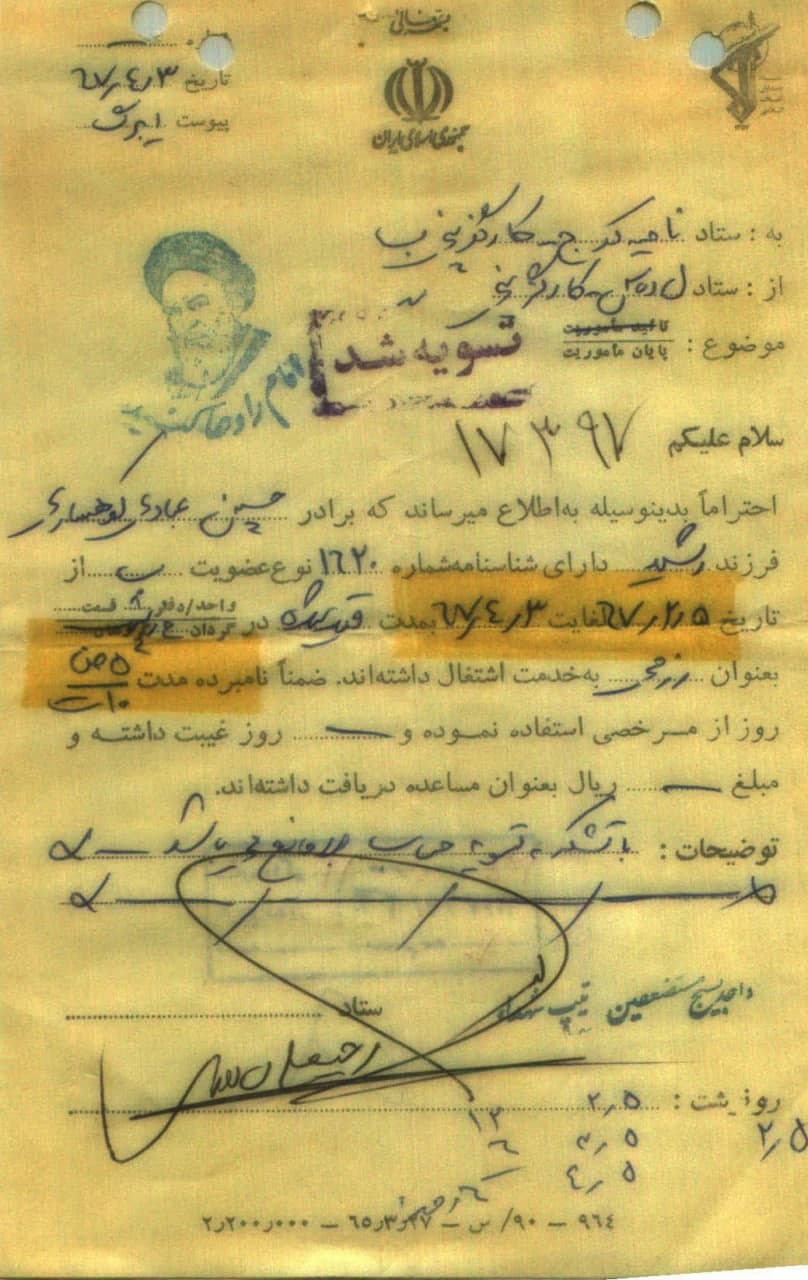 بسمه تعالی
جمهوری اسلامی ایران
شماره
تاریخ ۶۷٫۴٫۳
پیوست ۱ برگ
به : ستاد ناحیه کرج - کارگزینی ب
از : ستاد کارگزینی
موضوع : تائید مأموریت
پایان مأموریت
تسویه شد
امام را دعا کنید
سلام علیکم ۱۷۳۹۷
احتراماً بدینوسیله به‌اطلاع میرساند که برادر حسین عبادی
فرزند رشید دارای شناسنامه‌شماره ۱۶۲۰ نوع عضویت ب از
تاریخ ۶۷٫۲٫۵ لغایت ۶۷٫۴٫۳ بمدت در واحد/دفتر قسمت
گردان
بعنوان رزمی به‌خدمت اشتغال داشته‌اند. ضمناً نامبرده مدت ۵
۱۰
روز از مرخصی استفاده نموده و — روز غیبت داشته و
مبلغ — ریال بعنوان مساعده دریافت داشته‌اند.
توضیحات : با تشکر تسویه حساب بلامانع می باشد
واحد بسیج مستضعفین تیپ
ستاد
رونوشت : ۲٫۵
۲٫۵
۱۲
۳٫۵
۶
۴٫۵
۹۶۴ – ۹۰/ س – ۶۵٫۳٫۲۷ – ۲٫۲۰۰٫۰۰۰